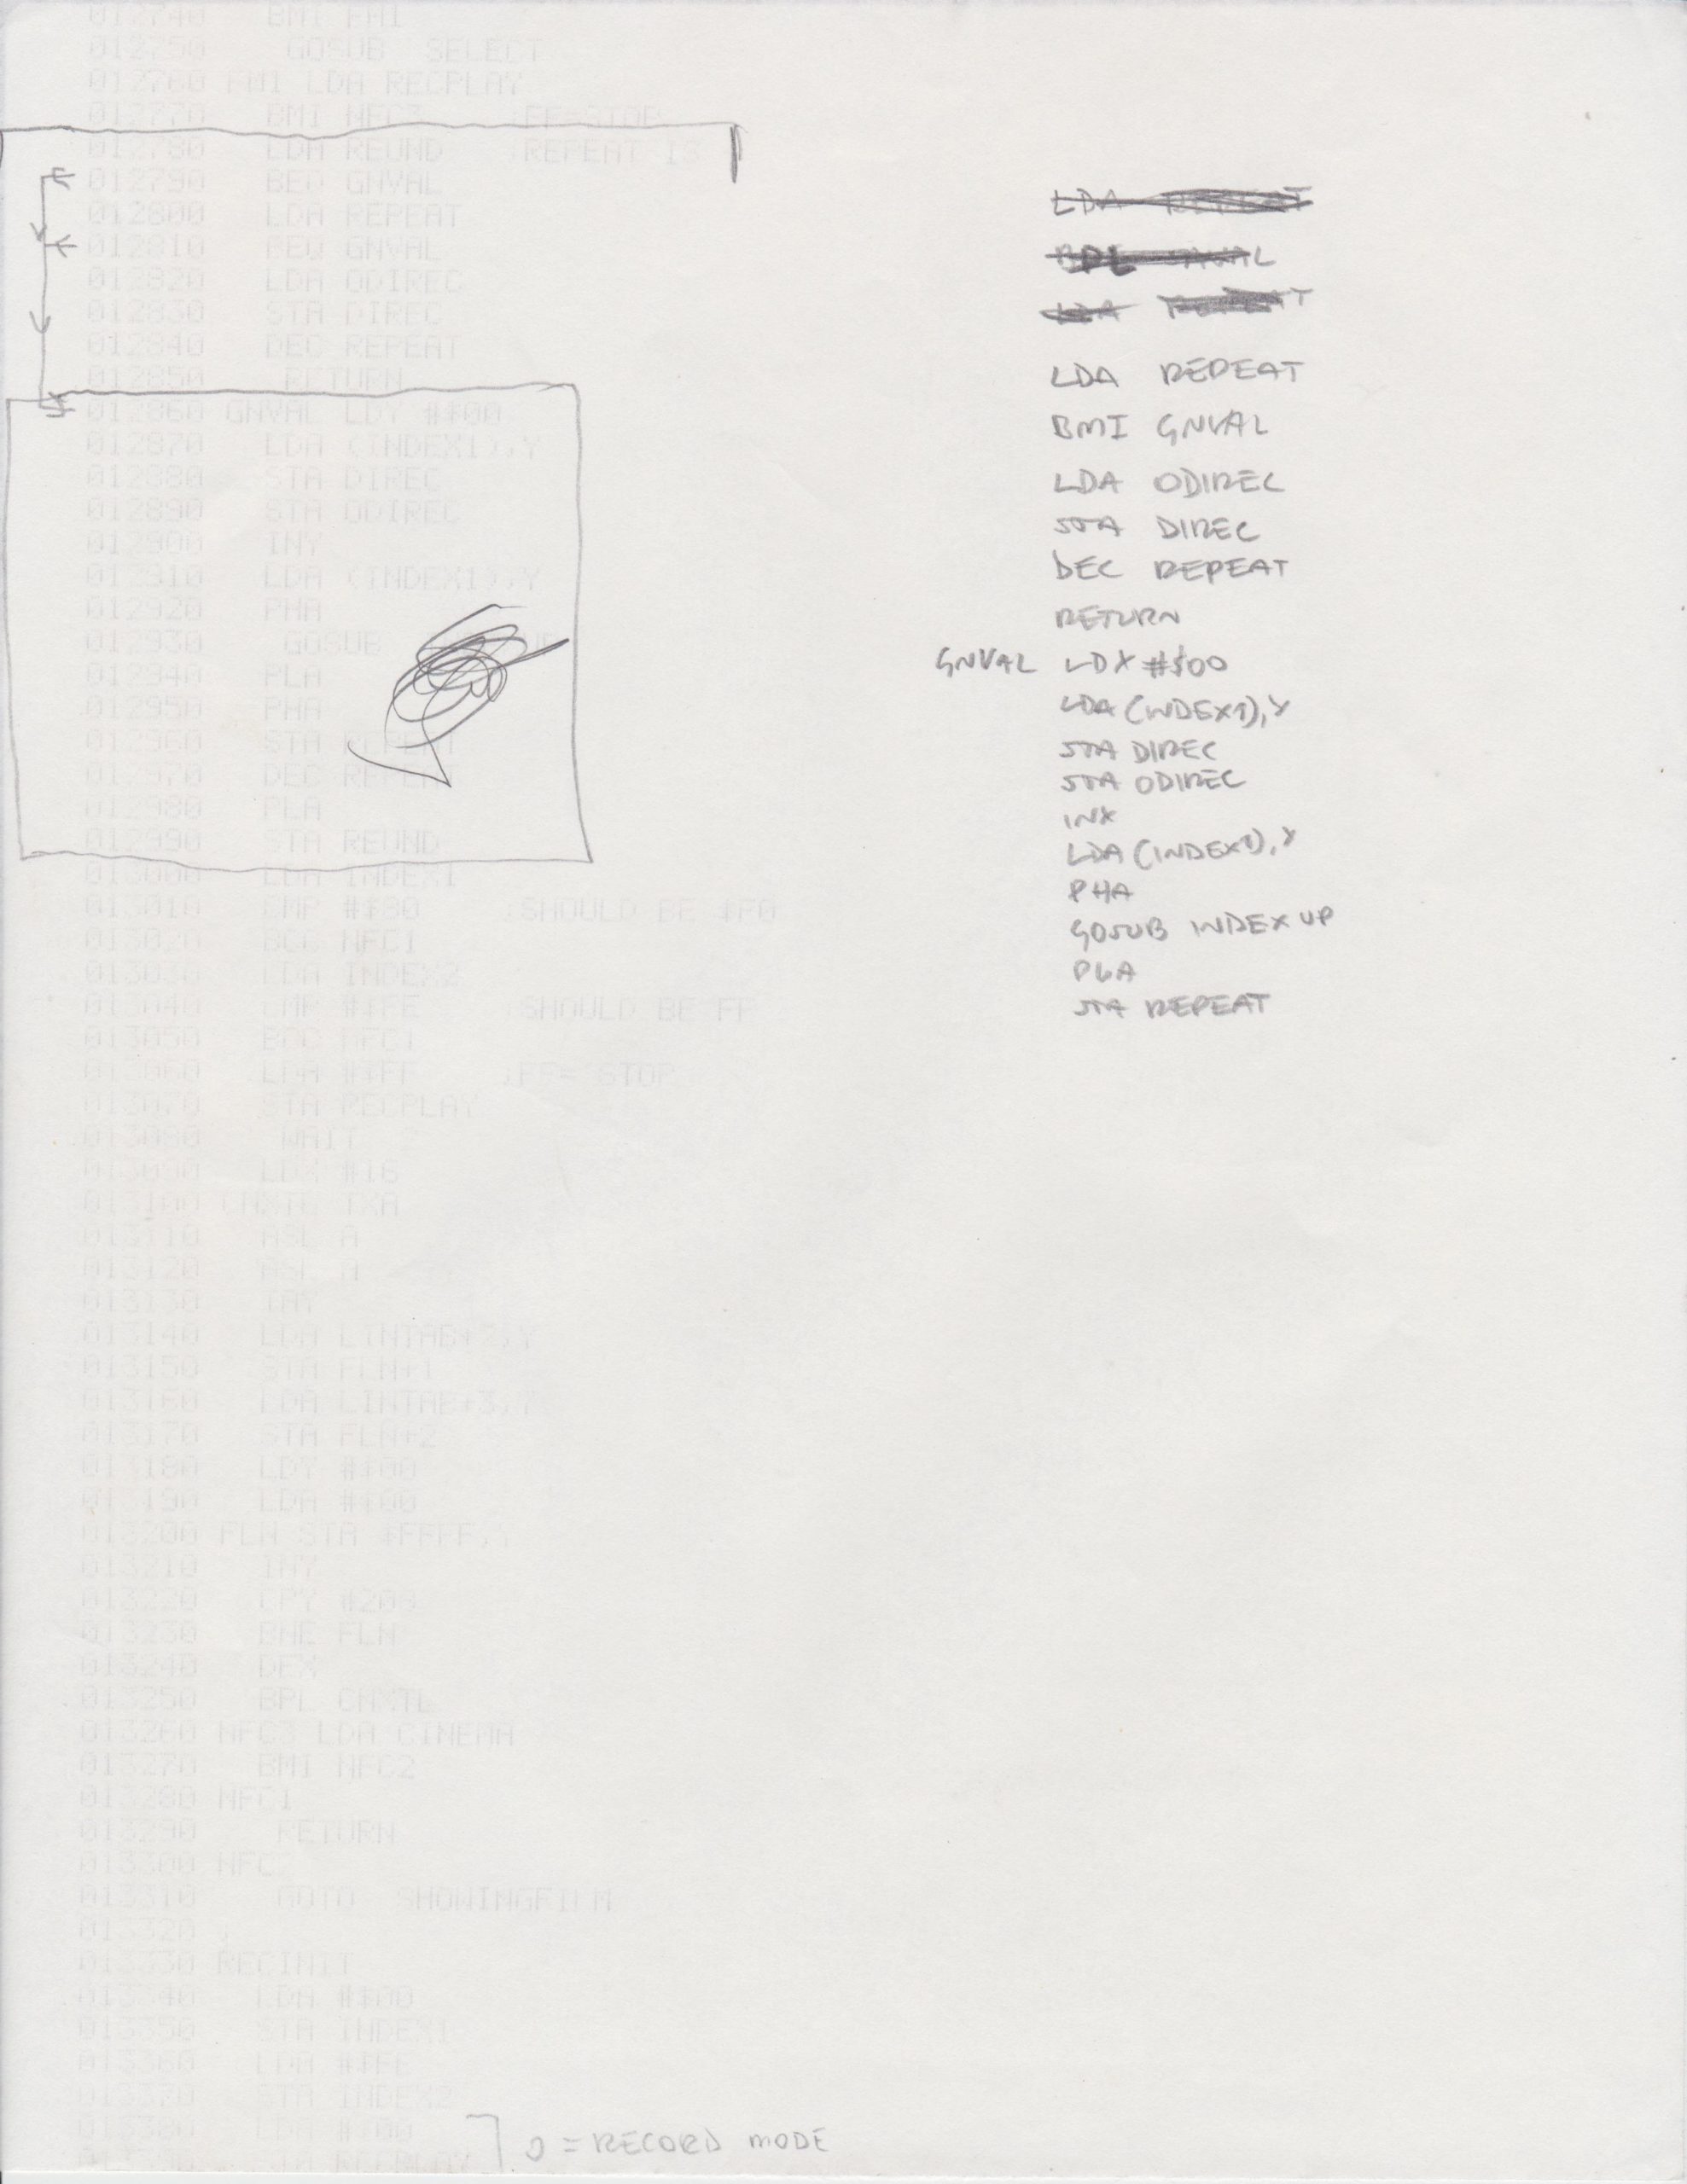 012740 BMI FMI
012750 GOSUB SELECT
012760 FMI LDA RECPLAY
012770 BMI NFC3 ;FF=STOP
012780 LDA REUND ;REPEAT IS
012790 BEQ GNVAL
012800 LDA REPEAT
012810 BEQ GNVAL
012820 LDA ODIREC
012830 STA DIREC
012840 DEC REPEAT
012850 RETURN
012860 GNVAL LDY #$00
012870 LDA (INDEX1),Y
012880 STA DIREC
012890 STA ODIREC
012900 INY
012910 LDA (INDEX1),Y
012920 PHA
012930 GOSUB
012940 PLA
012950 PHA
012960 STA REPEAT
012970 DEC REPEAT
012980 PLA
012990 STA REUND
013000 LDA INDEX1
013010 CMP #$80 ;SHOULD BE $F0
013020 BCC NFC1
013030 LDA INDEX2
013040 CMP #$FE ;SHOULD BE FF
013050 BCC NFC1
013060 LDA #$FF ;FF= STOP
013070 STA RECPLAY
013080 WAIT
013090 LDX #16
013100 TXA
013110 ASL A
013120 ASL A
013130 TAY
013140 LDA LINTAB+2,Y
013150 STA FLN+1
013160 LDA LINTAB+3,Y
013170 STA FLN+2
013180 LDY #$00
013190 LDA #$00
013200 FLN STA $FFFF,Y
013210 INY
013220 CPY #200
013230 BNE FLN
013240 DEX
013250 BPL
013260 NFC3 LDA CINEMA
013270 BMI NFC2
013280 NFC1
013290 RETURN
013300 NFC
013310 GOTO SHOWINGFILM
013320 ;
013330 RECINIT
013340 LDA #$00
013350 STA INDEX1
013360 LDA #$FE
013370 STA INDEX2
013380 LDA #$00
STA RECPLAY
0 = RECORD MODE
LDA REPEAT
BPL GNVAL
LDA REPEAT
LDA REPEAT
BMI GNVAL
LDA ODIREC
STA DIREC
DEC REPEAT
RETURN
GNVAL LDX #$00
LDA (INDEX1),Y
STA DIREC
STA ODIREC
INX
LDA (INDEX1),Y
PHA
GOSUB INDEX UP
PLA
STA REPEAT